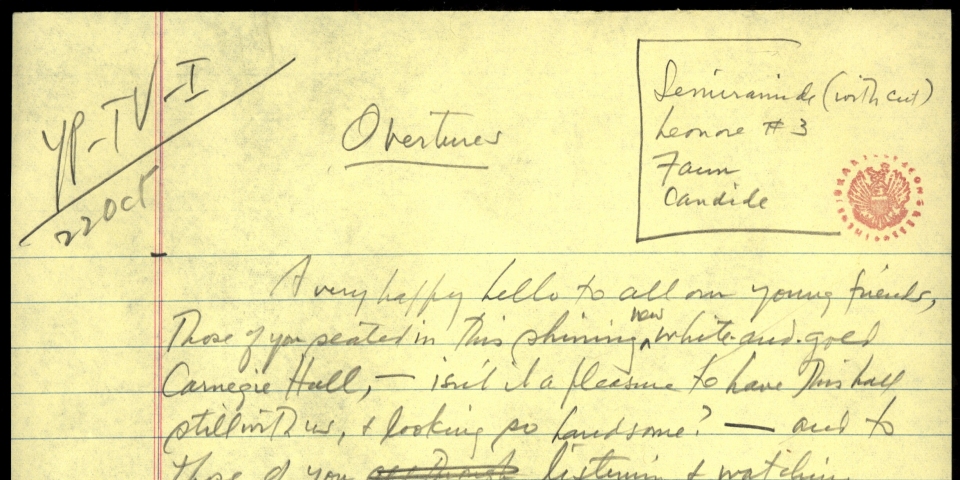 YP-TV-I
22 Oct
Overtures
Semiramide (with cut)
Leonore #3
Faun
Candide
A very happy hello to all our young friends,
Those of you seated in this shining new white-and-gold
Carnegie Hall, — isn't it a pleasure to have this hall
still with us, & looking so handsome? — and to
those of you listening & watching